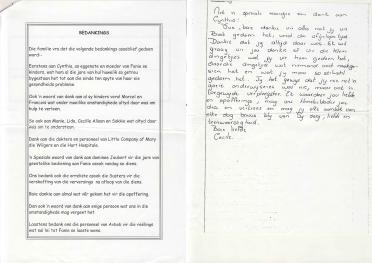 BEDANKINGS
Die familie vra dat die volgende bedankings asseblief gedoen
word:-
Eerstens aan Cynthia, as eggenote en moeder van Fanie se
kinders, wat hom al die jare van hul huwelik so getrou
bygestaan het tot aan die einde ten spyte van haar eie
omstandighede.
Ook 'n woord van dank aan al sy kinders veral Marcel en
Francois wat onder moeilike omstandighede altyd daar was om
hulp te verleen.
So ook aan Marele, Lida, Cecilia Alleen en Sakkie wat altyd daar
was om te ondersteun.
Dank aan die dokters en personeel van Little Company of Mary
die Wilgers en die Hart Hospitale.
'n Spesiale woord van dank aan dominee Joubert vir die jare van
geestelike bediening aan Fanie asook vir die diens vandag.
Ons bedank ook die orreliste asook die Susters vir die
verskaffing van die verversings na afloop van die diens.
Baie dankie aan almal wat vêr gekom het vir die opoffering.
Dan ook 'n woord van dank aan enige persoon wat ons in die
omstandighede mag vergeet het
Laastens bedank ons die personeel van Avbob vir die reëlings
wat sal lei tot Fanie se laaste wens.
Net 'n spesiale woordjie van dank aan
Cynthia:
Ous, baie dankie vir alles wat jy vir
Boet gedoen het, veral die afgelope tyd
Dankie dat jy altyd daar was. Ek wil
graag vir jou dankie sê vir die klein
dingetjies wat jy vir hom gedoen het,
daardie dingetjies wat niemand ooit raakge-
sien het en wat jy maar so verlief
gedoen het. Jy het gesorg dat jy nie net 'n
goeie onderwyseres was nie, maar ook 'n
toegewyde verpleegster. Ek waardeer jou liefde
en opoffering, mag ons Hemelvader jou
dra en vertroos en mag jy elke oomblik van
elke dag bewus bly van Sy sorg, liefde en
teenwoordigheid.
Baie liefde
Cecile.